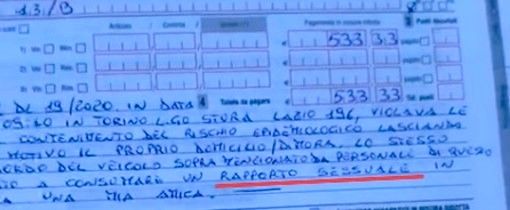 1.3./B
Articolo / Comma /
Pagamento in misura ridotta
1) Vei Rim. € 533 33
2) Vei Rim. €
3) Vei Rim. €
4 Totale da pagare € 533 33 Tot. punti
DL 19/2020. IN DATA
09:40 IN TORINO L.GO STURA LAZIO 196, VIOLAVA LE
CONTENIMENTO DEL RISCHIO EPIDEMIOLOGICO LASCIANDO
MOTIVO IL PROPRIO DOMICILIO/DIMORA. LO STESSO
BORDO DEL VEICOLO SOPRA MENZIONATO DA PERSONALE DI
A CONSUMARE UN RAPPORTO SESSUALE IN
UNA MIA AMICA.